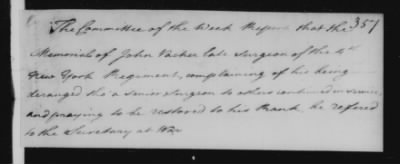 The Committee of the Week Report that the 357
Memorial of John Vacher late Surgeon of the 4th
New York Regiment, complaining of his being
deranged tho' a senior Surgeon to others continued in service,
and praying to be restored to his Rank, be refered
to the Secretary at War